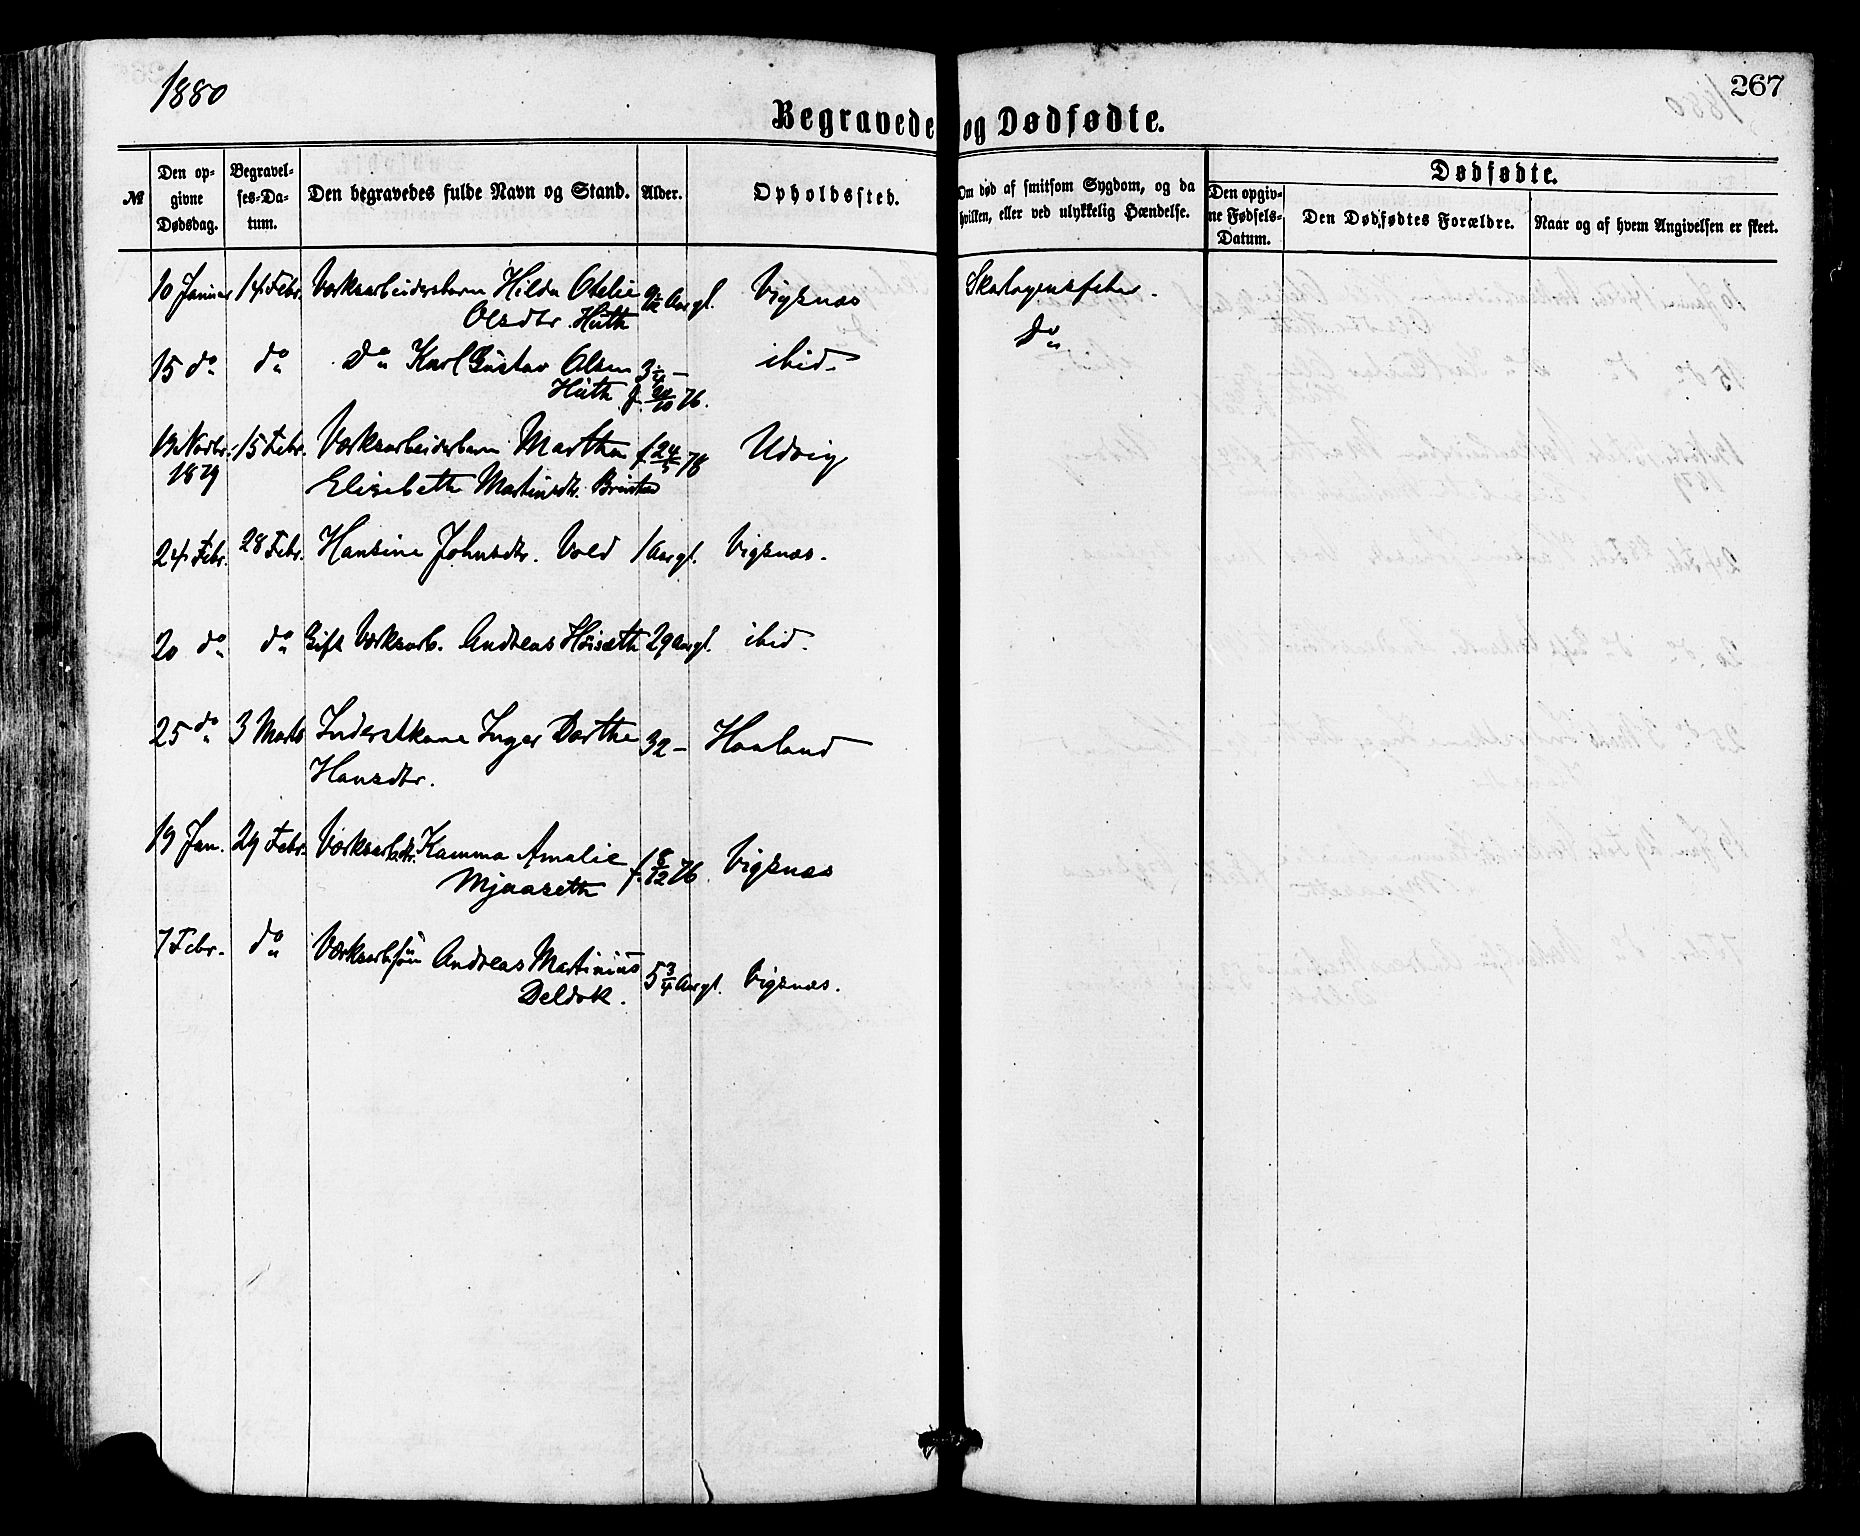 1880
267
Begravede og Dødfødte.
№
Den opgivne Dødsdag.
Begravelses-Datum.
Den begravedes fulde Navn og Stand.
Alder.
Opholdssted.
Om død af smitsom Sygdom, og da hvilken, eller ved ulykkelig Hændelse.
Dødfødte.
Den opgivne Fødsels-Datum.
Den Dødfødtes Forældre.
Naar og af hvem Angivelsen er skeet.
10 Januar 14 Febr. Værksarbeidersbarn Hilda Otelie Aargl. Vigsnæs Skarlagensfeber.
Olsdtr. Huth
15 do do do Karl Gustav Olsen 3 1/4 - ibid. do
Huth f. 20/10 76.
13 Novbr. 15 Febr. Værksarbeiderbarn Martha f 24/5 78 Udvig
1879 Elisebeth Martinsdtr.
24 Febr. 28 Febr. Hansine Johnsdtr. Vold 1 Aargl. Vigsnæs.
20 do do Gift Værksarb. Andreas Høisæth 29 Aargl. ibid.
25 do 3 Marts Inderstkone Inger Dorthe 32 - Haaland
Hansdtr.
19 Jan. 29 Febr. Kamma Amalie f. 8/12 76. Vigsnæs
Mjaaseth
7 Febr. do Værksarbsøn Andreas Martinius 5 3/4 Aargl. Vigsnæs.
Deldok.